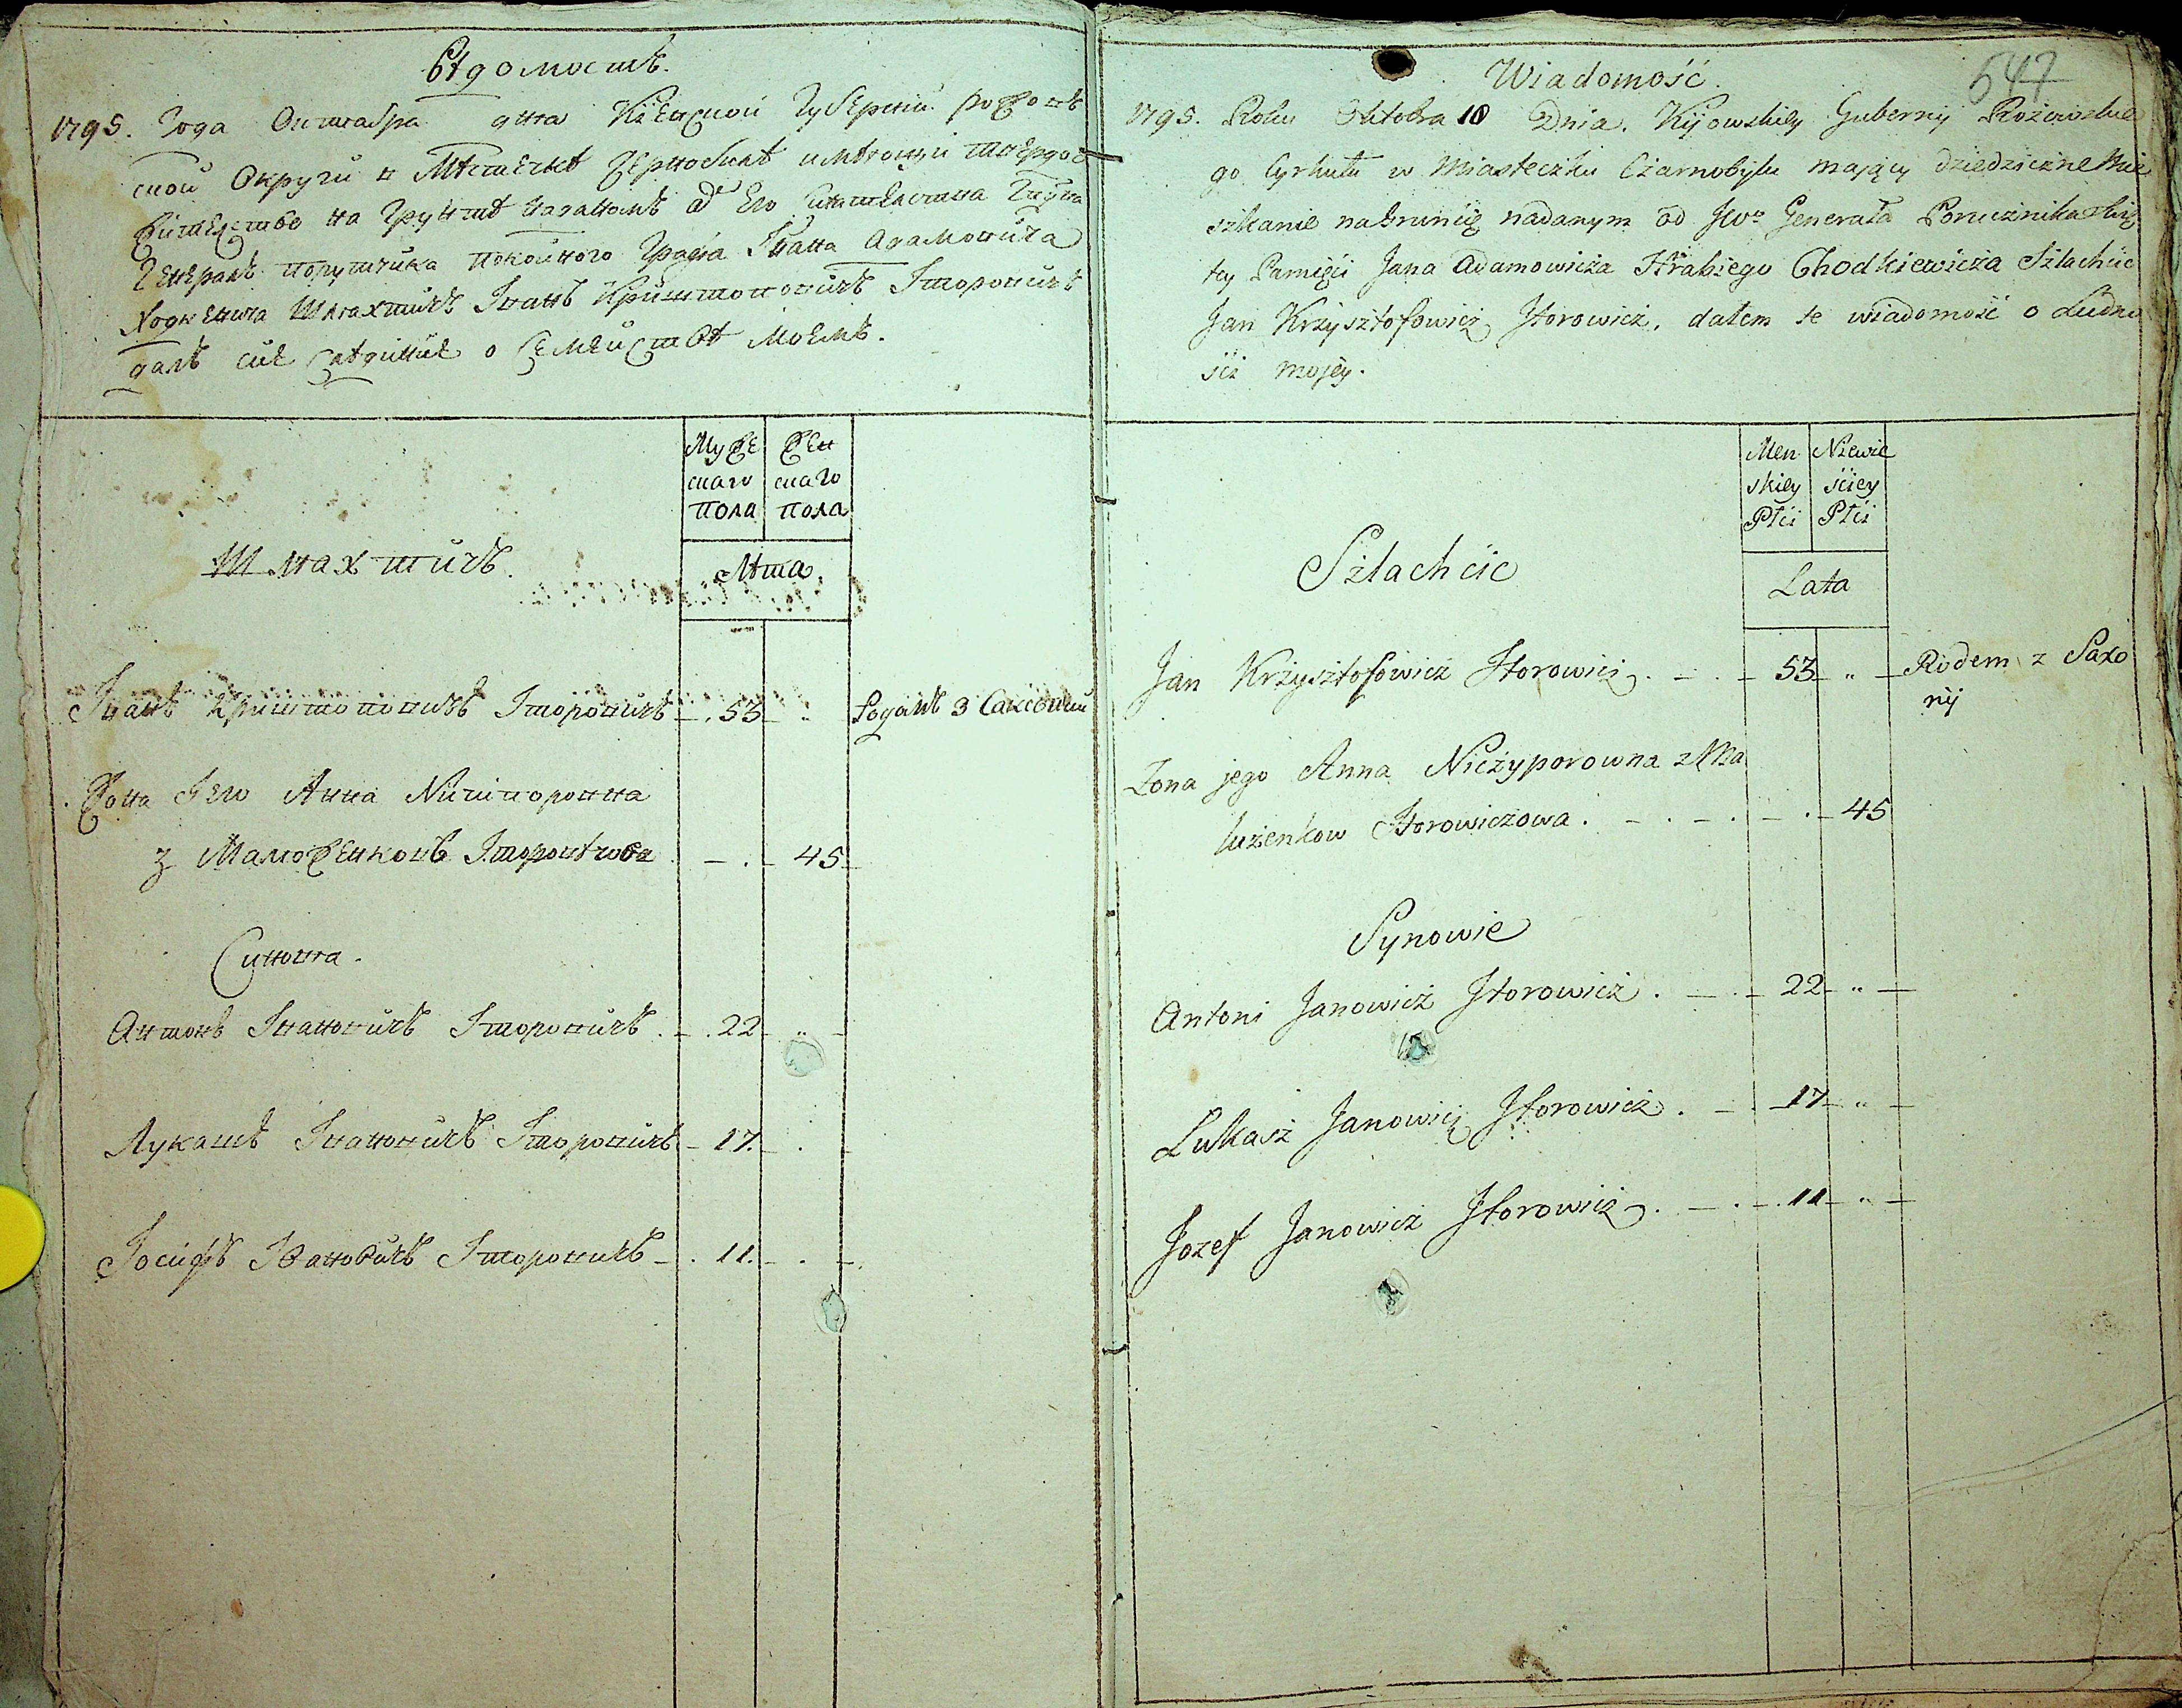 Вѣдомость.
1795. Года Октября дня Кіевской Губерніи
ской Округи в Мѣстечкѣ Чернобилѣ имѣющи твердое
жителство на Грунтѣ наданомъ od Его Сіятелства
Генералъ порутчика покойного Графа Івана Адамовича
Ходкевича Шляхтичъ Іванъ Криштоповичъ Іторовичъ
далъ сие свѣдиние о Семействѣ моемъ.
Муже Жен
скаго скаго
пола пола
Шляхтичъ. Лѣта.
Іванъ Криштоповичъ Іторовичъ 53 „ Родомъ з Саксонии
Жона Его Анна Ничипоровна
з Маложенковъ Іторовичова 45
Синовя.
Антонъ Івановичъ Іторовичъ . 22 „
Лукашъ Івановичъ Іторовичъ 17.
Іосифъ Івановичъ Іторовичъ . 11.
547
Wiadomość.
1795. Roku Oktobra 10 Dnia. Kijowskiey Guberny
go Cyrkułu w Miasteczku Czarnobylu mający dziedziczne Mie
szkanie na Gruncie nadanym od Generała Porucznika
tey Pamięci Jana Adamowicza Hrabiego Chodkiewicza Szlachcic
Jan Krzysztofowicz Jtorowicz, dałem te wiadomość o Ludno
ści mojey.
Men Niewie
skiey ściey
Płci Płci
Szlachcic Lata
Jan Krzysztofowicz Jtorowicz. 53 „ Rodem z Saxo
nij
Zona jego Anna Niczyporowna z Ma
łużenkow Jtorowiczowa. 45
Synowie
Antoni Janowicz Jtorowicz. 22 „
Łukasz Janowicz Jtorowicz. 17 „
Jozef Janowicz Jtorowicz. 11 „